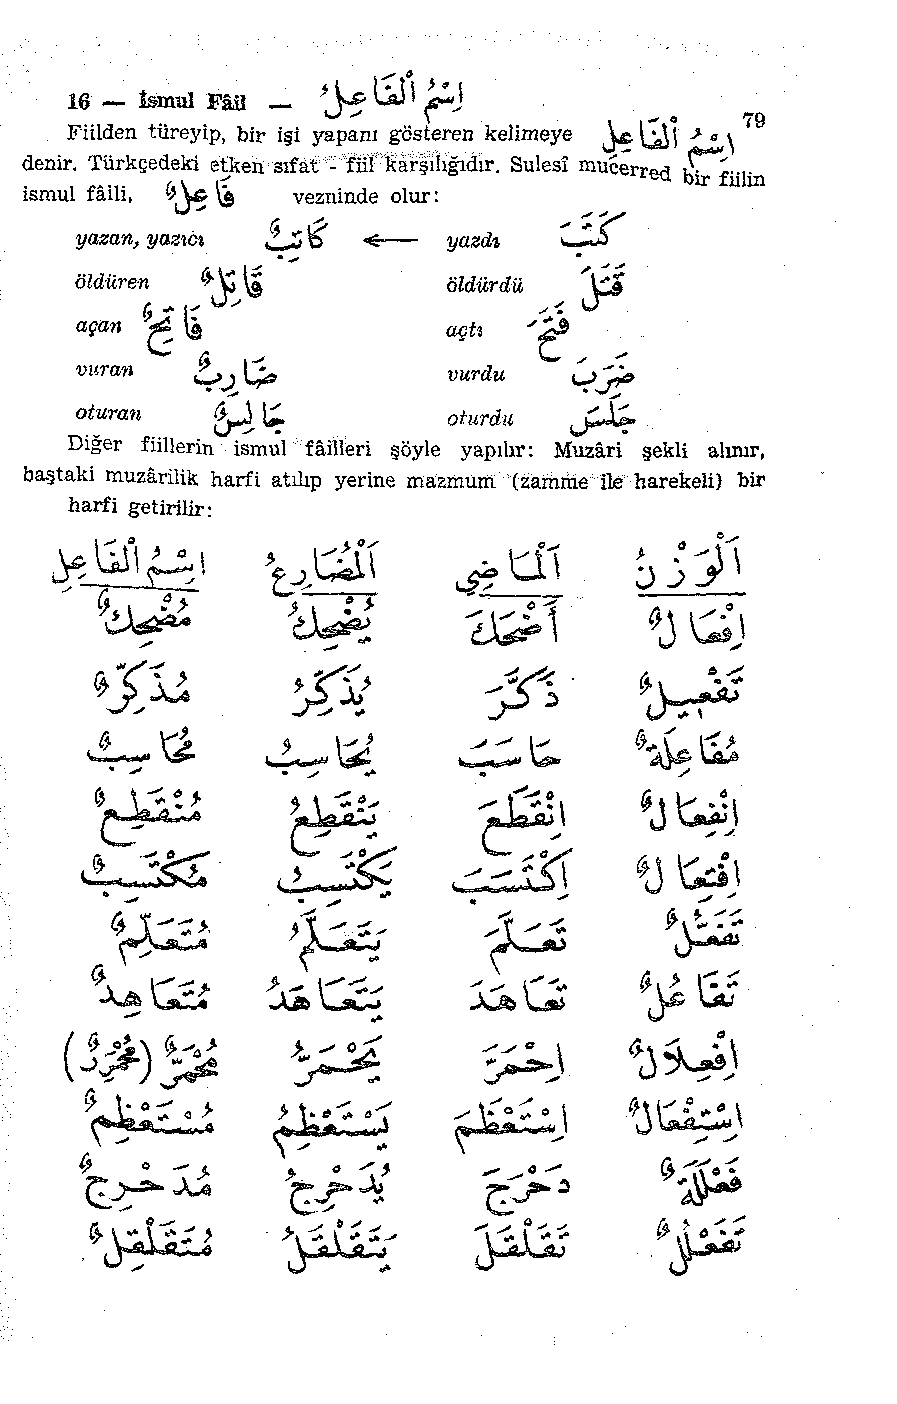 16 — İsmul Fâil — اِسْمُ اَلْفَاعِلُ
79
Fiilden türeyip, bir işi yapanı gösteren kelimeye اِسْمُ اَلْفَاعِلِ
denir. Türkçedeki etken sıfat - fiil karşılığıdır. Sulesî mucerred bir fiilin
ismul fâili, فَاعِلٌ vezninde olur:
yazan, yazıcı كَاتِبٌ ← yazdı كَتَبَ
öldüren قَاتِلٌ öldürdü قَتَلَ
açan فَاتِحٌ açtı فَتَحَ
vuran ضَارِبٌ vurdu ضَرَبَ
oturan جَالِسٌ oturdu جَلَسَ
Diğer fiillerin ismul fâilleri şöyle yapılır: Muzâri şekli alınır,
baştaki muzârilik harfi atılıp yerine mazmum (zamme ile harekeli) bir
harfi getirilir:
اَلْوَزْنُ اَلْمَاضِي اَلْمُضَارِعُ اِسْمُ اَلْفَاعِلِ
اِفْعَالٌ أَضْحَكَ يُضْحِكُ مُضْحِكٌ
تَفْعِيلٌ ذَكَّرَ يُذَكِّرُ مُذَكِّرٌ
مُفَاعِلَةٌ حَاسَبَ يُحَاسِبُ مُحَاسِبٌ
اِنْفِعَالٌ اِنْقَطَعَ يَنْقَطِعُ مُنْقَطِعٌ
اِفْتِعَالٌ اِكْتَسَبَ يَكْتَسِبُ مُكْتَسِبٌ
تَفَعُّلٌ تَعَلَّمَ يَتَعَلَّمُ مُتَعَلِّمٌ
تَفَاعُلٌ تَعَاهَدَ يَتَعَاهَدُ مُتَعَاهِدٌ
اِفْعِلَالٌ اِحْمَرَّ يَحْمَرُّ مُحْمَرٌّ (مُحْمَرِدٌ)
اِسْتِفْعَالٌ اِسْتَعْظَمَ يَسْتَعْظِمُ مُسْتَعْظِمٌ
فَعْلَلَةٌ دَحْرَجَ يُدَحْرِجُ مُدَحْرِجٌ
تَفَعْلُلٌ تَقَلْقَلَ يَتَقَلْقَلُ مُتَقَلْقِلٌ